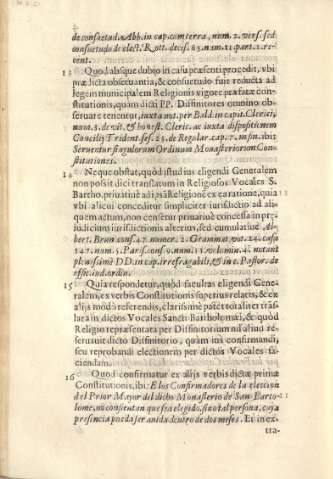 de consuetud. Abb. in cap. cum terra, num. 2. vers. sed
consuetudo de elect. Rott. decis. 63. num. 11. part. 1. re-
cent.
13 Quod absque dubio in casu præsenti procedit, vbi
præ dicta observantia, & consuetudo fuit reducta ad
legem municipalem Religionis vigore præfatæ con-
stitutionis, quam dicti PP. Diffinitores omnino ob-
seruare tenentur, iuxta aut. per Bald. in capit. Clerici,
num. 3. de vit. & honest. Cleric. ac iuxta dispositionem
Concilij Trident. ses. 25. de Regular. cap. 7. in fin. ibi:
Seruentur singulorum Ordinum Monasteriorum Con-
stitutiones.
14 Neque obstat, quod istud ius eligendi Generalem
non possit dici translatum in Religiosos Vocales S.
Bartho. priuatiuè ad ipsã Religionẽ ex ea ratione, quia
vbi alicui conceditur simpliciter iurisdictio ad ali-
quem actum, non censetur priuatiuè concessa in præ-
iudicium iurisdictionis alterius, sed cumulatiuè Al-
bert. Brun. cons. 47. numer. 2. Grammat. vot. 24. casu
147. num. 5. Pars. cons. 2. num. 11. volumin. 4. notant
plenissimè DD. in cap. irrefragabili, & in c. Pastor. de
offic. ind. ordin.
15 Quia respondetur, quòd facultas eligendi Gene-
ralem, ex verbis Constitutionis superius relatis, & ex
alijs modò referendis, clarissimè patet totaliter trãs-
lata in dictos Vocales Sancti Bartholomæi, & quòd
Religio repræsentata per Diffinitorium nil aliud re-
seruauit dicto Diffinitorio, quàm ius confirmandi,
seu reprobandi electionem per dictos Vocales fa-
ciendam.
16 Quod confirmatur ex alijs verbis dictæ primæ
Constitutionis, ibi: Elos Confirmadores de la eleccion
del Prior Mayor del dicho Monasterio de San Barto-
lome, no consientan que sea elegido, sino tal persona, cuya
presencia pueda ser auida dentro de dos meses. Et in ex-
tra-